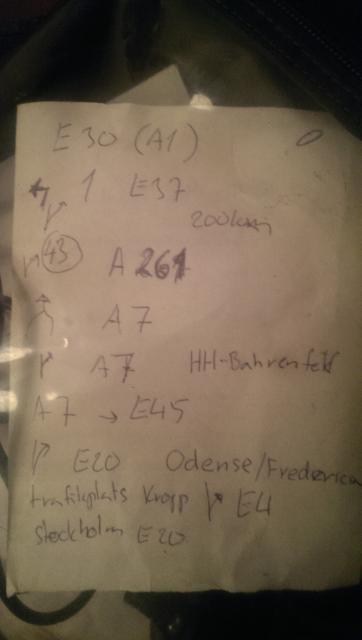 E30 (A1)
1 E37
200km
43 A 261
A7
A7 HH-Bahrenfeld
A7 → E45
E20 Odense/Fredericia
trafikplats Kropp E4
Stockholm E20